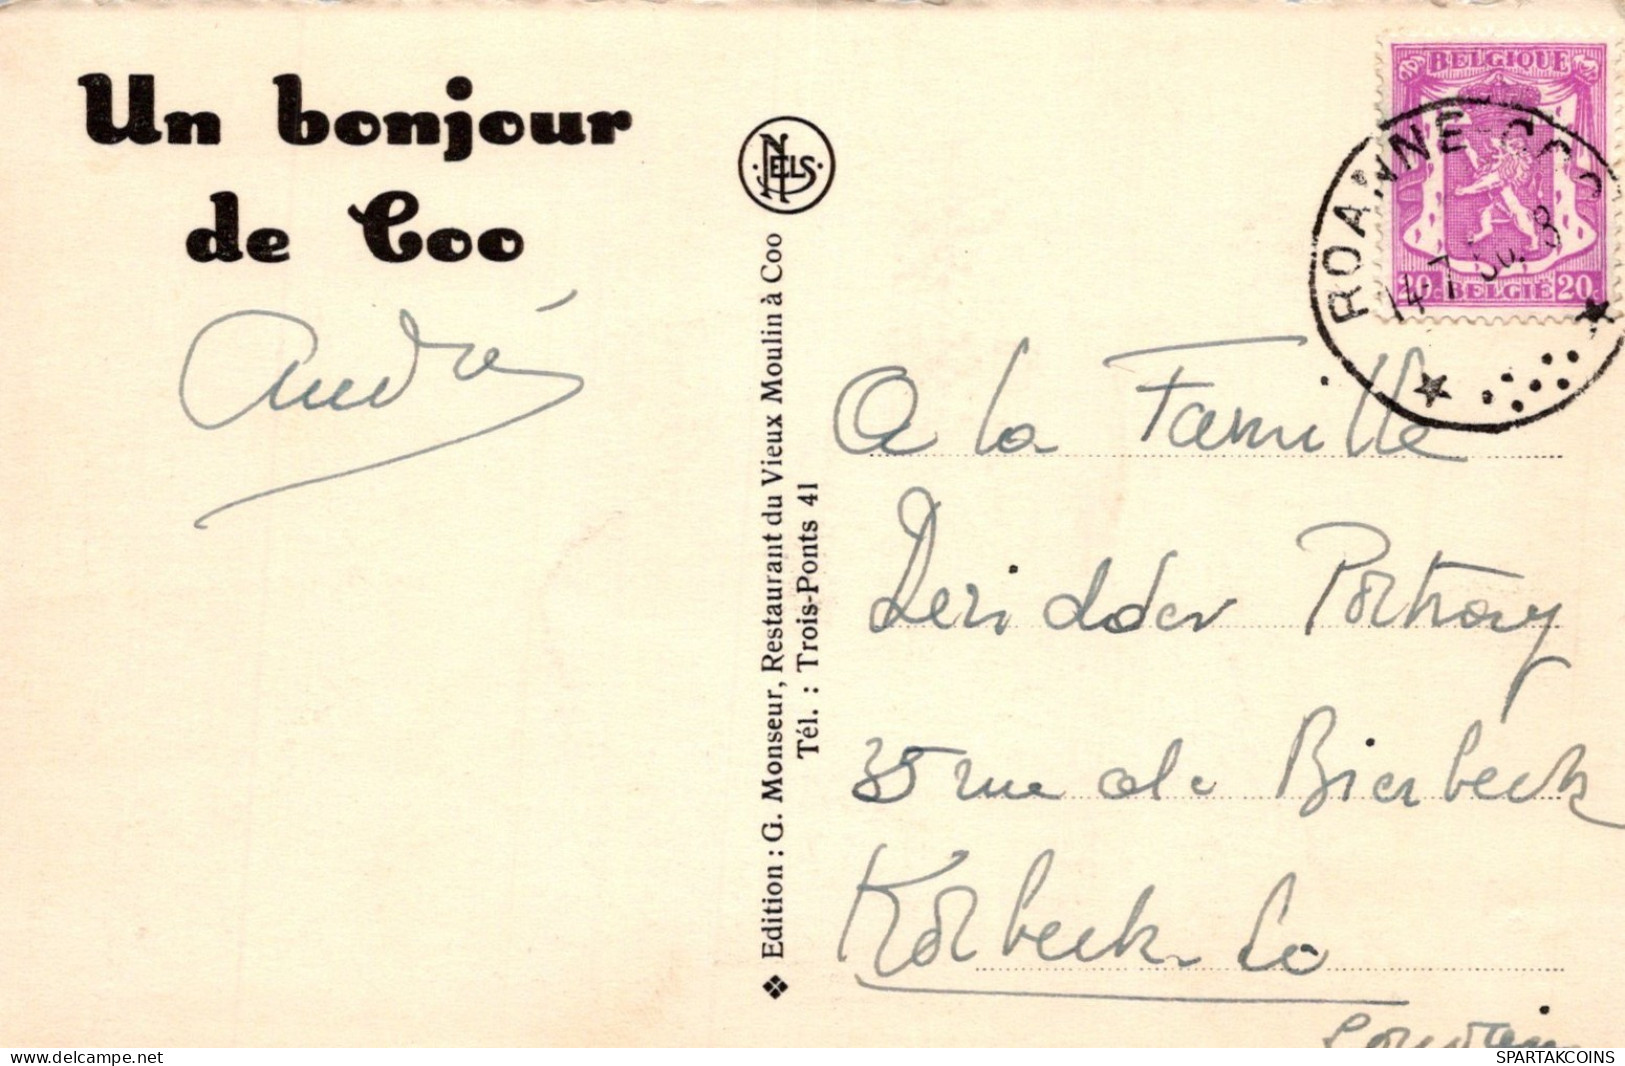 Un bonjour
de Coo
André
NELS
❖ Edition : G. Monseur, Restaurant du Vieux Moulin à Coo
Tél. : Trois-Ponts 41
BELGIQUE
20c BELGIE 20c
ROANNE-COO
14-7
A la Famille
Deridder Portray
35 rue de Bierbeek
Korbeek-Lo
Louvain
SPARTAKCOINS